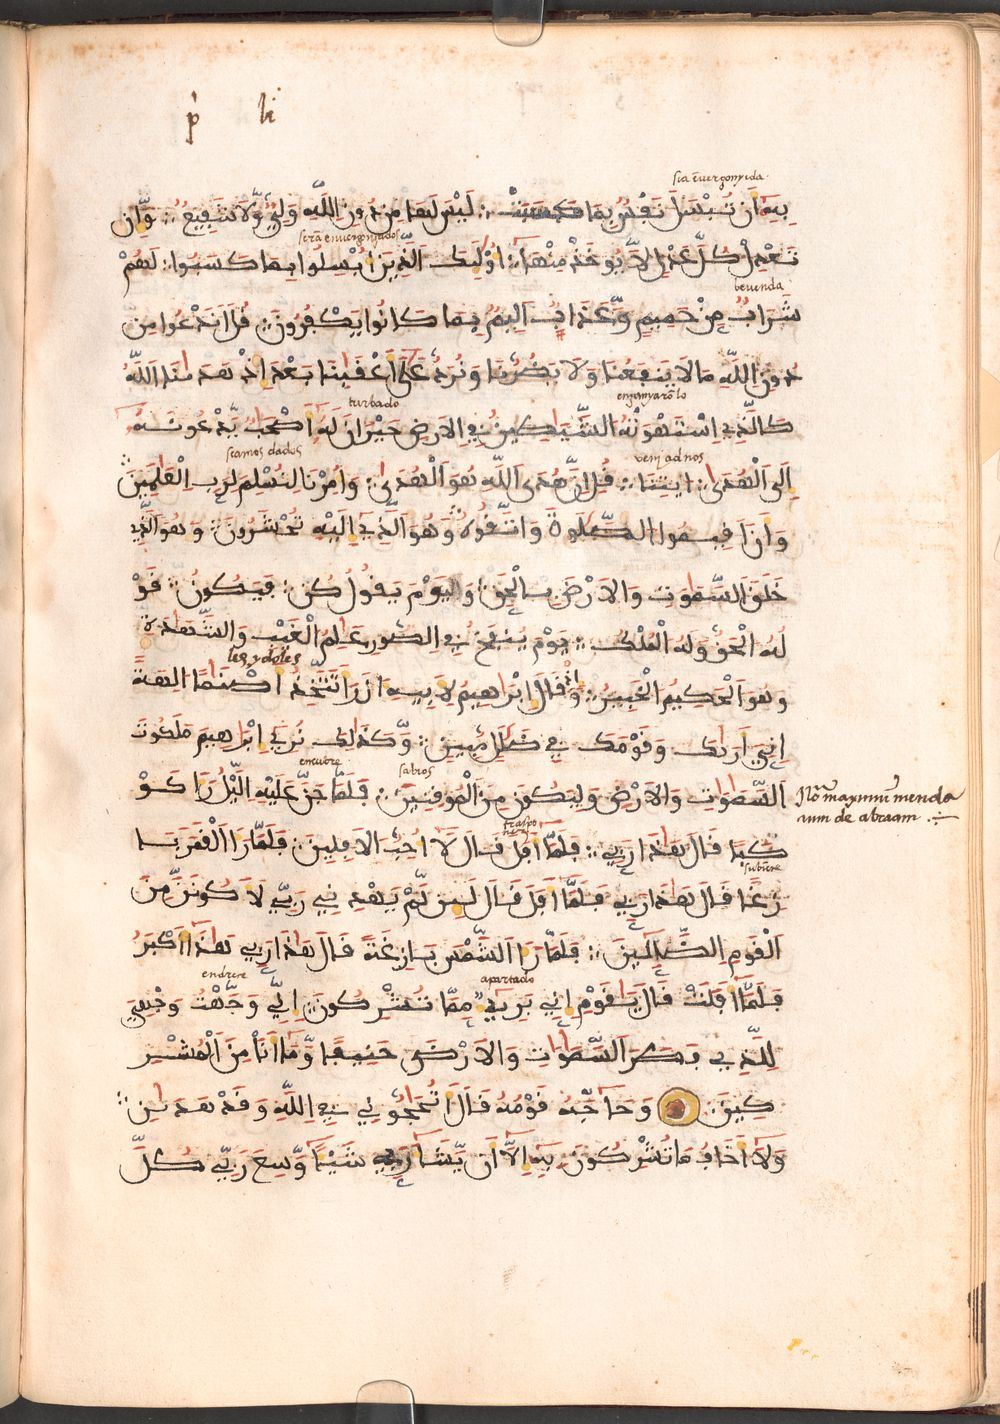 p li
sia ēvergonyida
بِهِۦٓ أَن تُبْسَلَ نَفْسُۢ بِمَا كَسَبَتْ لَيْسَ لَهَا مِن دُونِ اللَّهِ وَلِيٌّ وَّلَا شَفِيعٌ وَّإِن
serā envergonyados
تَعْدِلْ كُلَّ عَدْلٍ لَّا يُوخَذْ مِنْهَا أُوْلَٰٓئِكَ الَّذِينَ أُبْسِلُوا بِمَا كَسَبُوا لَهُمْ
bevenda
شَرَابٌ مِّنْ حَمِيمٍ وَّعَذَابٌ أَلِيمٌ بِمَا كَانُوا يَكْفُرُونَ قُلْ أَنَدْعُوا مِن
دُونِ اللَّهِ مَا لَا يَنفَعُنَا وَلَا يَضُرُّنَا وَنُرَدُّ عَلَىٰٓ أَعْقَابِنَا بَعْدَ إِذْ هَدَىٰنَا اللَّهُ
turbado enganyarō lo
كَالَّذِي اسْتَهْوَتْهُ الشَّيَٰطِينُ فِي الْأَرْضِ حَيْرَانَ لَهُۥٓ أَصْحَٰبٌ يَّدْعُونَهُۥٓ
siamos dados veni ad nos
إِلَى الْهُدَى ايتِنَا قُلْ إِنَّ هُدَى اللَّهِ هُوَ الْهُدَىٰ وَأُمِرْنَا لِنُسْلِمَ لِرَبِّ الْعَٰلَمِينَ
وَأَنْ أَقِيمُوا الصَّلَوٰةَ وَاتَّقُوهُ وَهُوَ الَّذِي إِلَيْهِ تُحْشَرُونَ وَهُوَ الَّذِي
خَلَقَ السَّمَٰوَٰتِ وَالْأَرْضَ بِالْحَقِّ وَيَوْمَ يَقُولُ كُن فَيَكُونُ قَوْ
لُهُ الْحَقُّ وَلَهُ الْمُلْكُ يَوْمَ يُنفَخُ فِي الصُّورِ عَٰلِمُ الْغَيْبِ وَالشَّهَٰدَةِ
les ydoles
وَهُوَ الْحَكِيمُ الْخَبِيرُ وَإِذْ قَالَ إِبْرَٰهِيمُ لِأَبِيهِ ءَازَرَ أَتَتَّخِذُ أَصْنَامًا ـالِهَةً
إِنِّيَ أَرَىٰكَ وَقَوْمَكَ فِي ضَلَٰلٍ مُّبِينٍ وَّكَذَٰلِكَ نُرِي إِبْرَٰهِيمَ مَلَكُوتَ
encubre sabios
السَّمَٰوَٰتِ وَالْأَرْضِ وَلِيَكُونَ مِنَ الْمُوقِنِينَ فَلَمَّا جَنَّ عَلَيْهِ الَّيْلُ رَءَا كَوْ
Nō maximū menda
cium de abraam
traspo
كَبًا قَالَ هَٰذَا رَبِّي فَلَمَّا أَفَلَ قَالَ لَا أُحِبُّ الْأَفِلِينَ فَلَمَّا رَءَا الْقَمَرَ بَا
زِغًا قَالَ هَٰذَا رَبِّي فَلَمَّا أَفَلَ قَالَ لَئِن لَّمْ يَهْدِنِي رَبِّي لَأَكُونَنَّ مِنَ
الْقَوْمِ الضَّالِّينَ فَلَمَّا رَءَا الشَّمْسَ بَازِغَةً قَالَ هَٰذَا رَبِّي هَٰذَا أَكْبَرُ
endrere apartado
فَلَمَّا أَفَلَتْ قَالَ يَٰقَوْمِ إِنِّي بَرِيٓءٌ مِّمَّا تُشْرِكُونَ إِنِّي وَجَّهْتُ وَجْهِيَ
لِلَّذِي فَطَرَ السَّمَٰوَٰتِ وَالْأَرْضَ حَنِيفًا وَّمَا أَنَا مِنَ الْمُشْرِ
كِينَ وَحَآجَّهُ قَوْمُهُ قَالَ أَتُحَٰجُّونِي فِي اللَّهِ وَقَدْ هَدَىٰنِ
وَلَا أَخَافُ مَا تُشْرِكُونَ بِهِۦٓ إِلَّا أَن يَّشَآءَ رَبِّي شَيْئًا وَّسِعَ رَبِّي كُلَّ